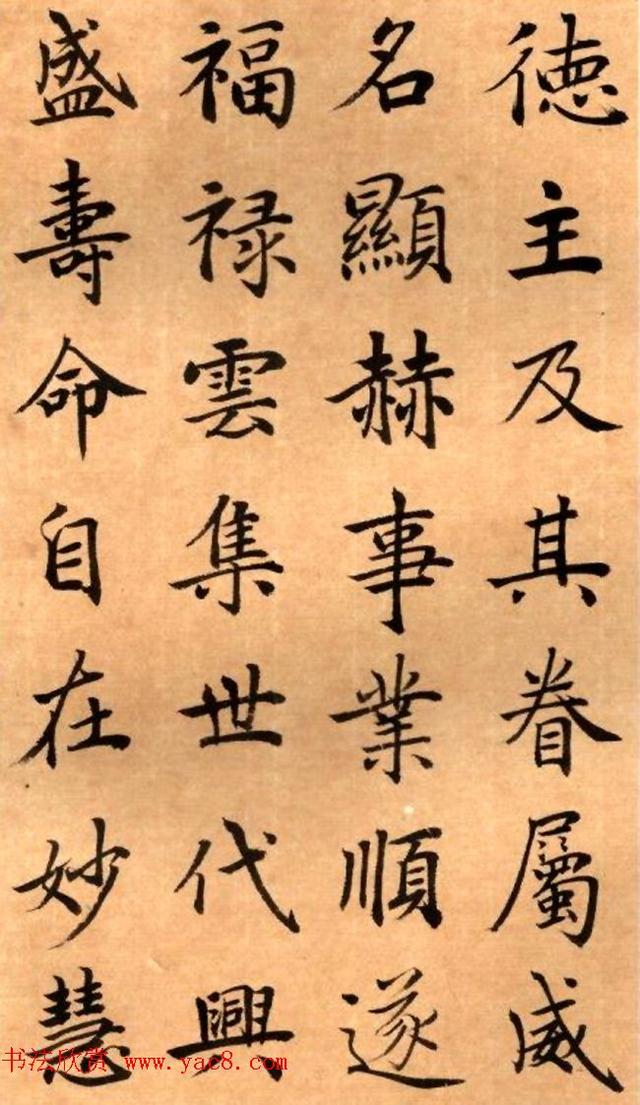 德主及其眷屬威
名顯赫事業順遂
福禄雲集世代興
盛壽命自在妙慧
书法欣赏 www.yac8.com